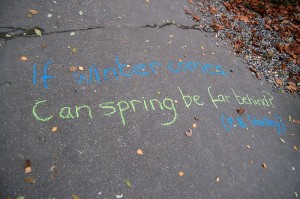 If winter comes
Can spring be far behind?
(P.B. Shelley)